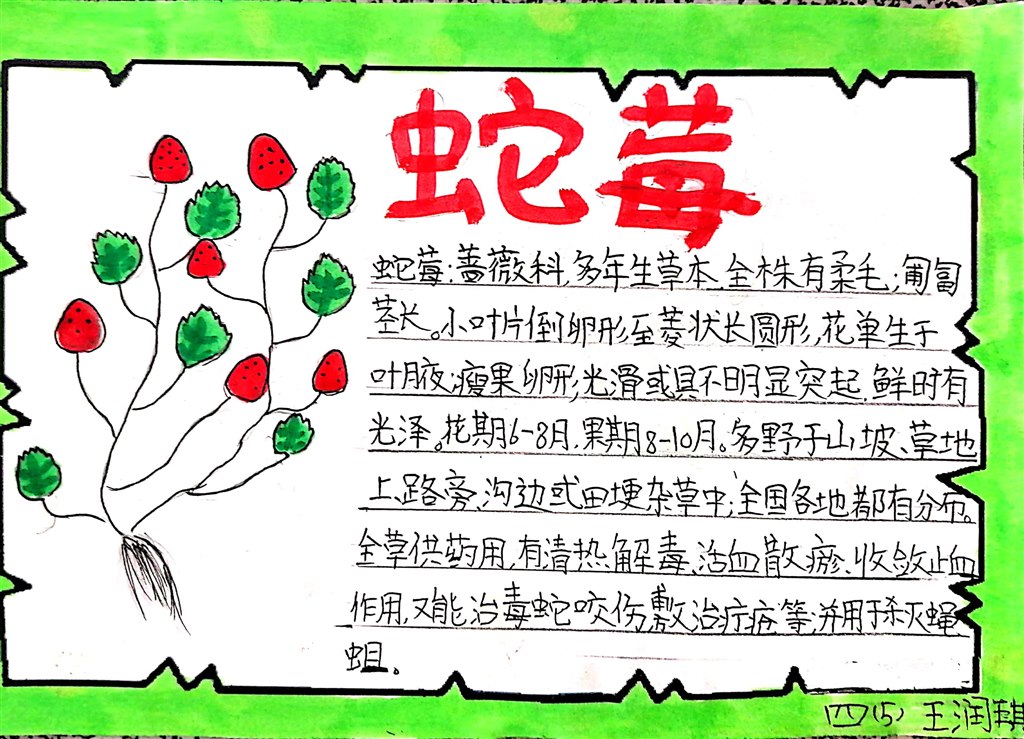 蛇莓
蛇莓:蔷薇科,多年生草本,全株有柔毛;匍匐
茎长。小叶片倒卵形至菱状长圆形,花单生于
叶腋;瘦果卵形,光滑或具不明显突起,鲜时有
光泽。花期6-8月,果期8-10月。多野于山坡、草地
上、路旁、沟边或田埂杂草中;全国各地都有分布。
全草供药用,有清热解毒、活血散瘀、收敛止血
作用,又能治毒蛇咬伤,敷治疔疮等;并用于杀灭蝇、
蛆。
四(5) 王润琪